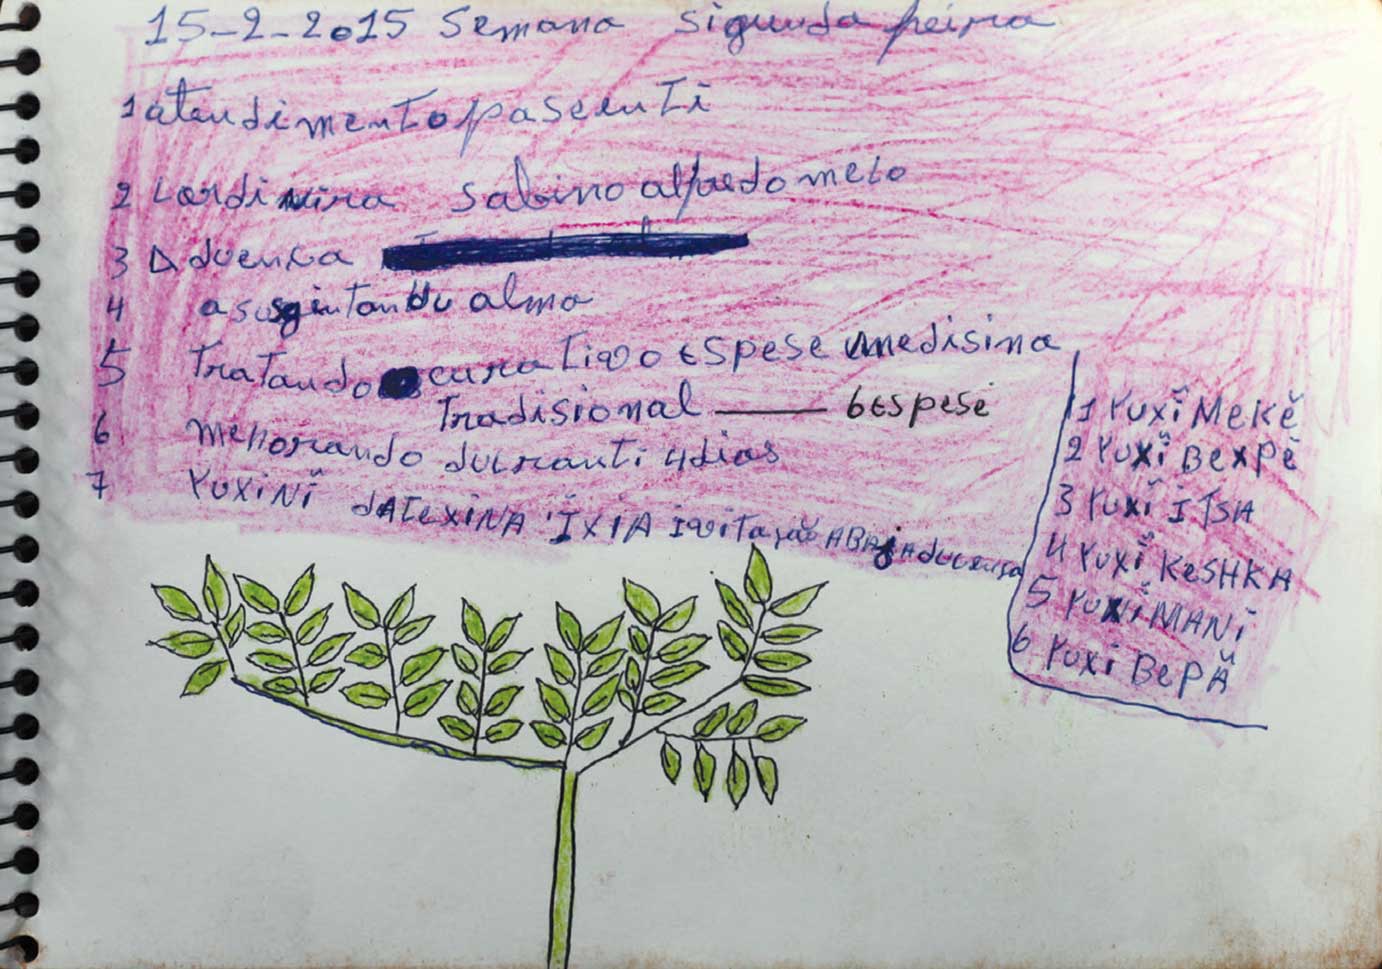 15-2-2015 Semana sigunda feira
1 atendimento pasenti
2 Lardinira Sabino alfredo melo
3 A duensa
4 asusgintandu alma
5 Tratando curativo espese medisina
Tradisional —— 6 espese
6 melhorando duranti 4 dias
7 YUXINĨ dATEXINA ĨXIA ivitasão ABAJA duensa
1 YUXĨ MEKẼ
2 YUXĨ BEXPẼ
3 YUXĨ ITSA
4 YUXĨ KESHKA
5 YUXĨ MANĨ
6 YUXI BEPÃ